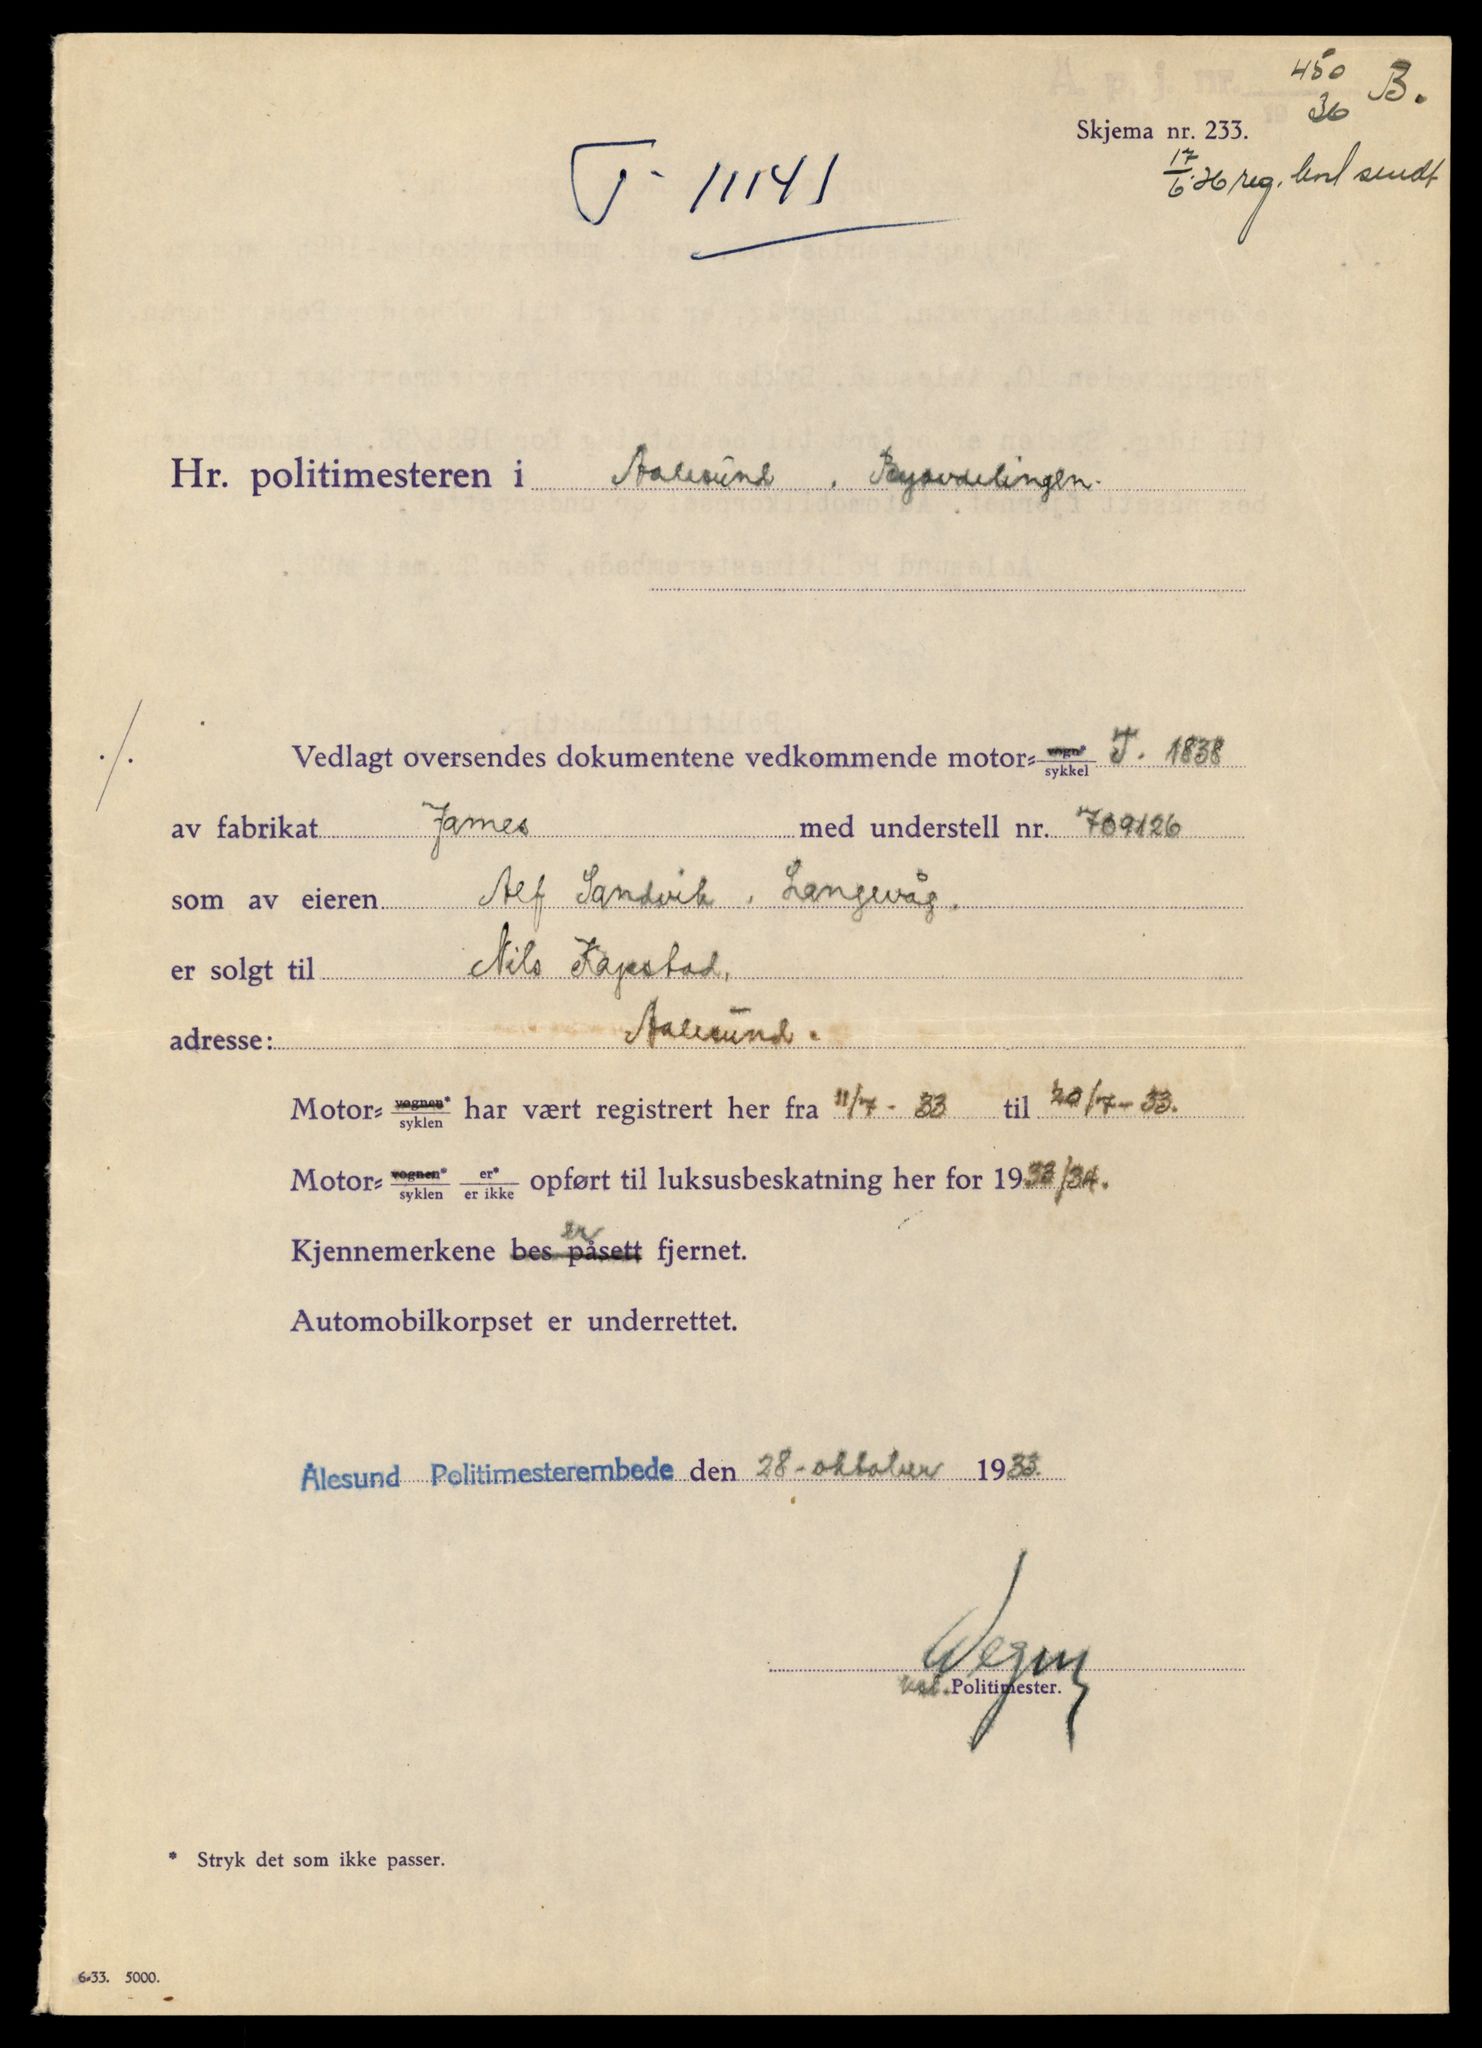 450 B.
36
Skjema nr. 233.
17/6.36 reg. sendt
T- 11141
Hr. politimesteren i Aalesund, Byavdelingen.
./. Vedlagt oversendes dokumentene vedkommende motor= vogn* sykkel T. 1838
av fabrikat James med understell nr. 709126
som av eieren Alf Sandvik, Langevåg.
er solgt til Nils Kapstad,
adresse: Aalesund.
Motor= vognen* syklen har vært registrert her fra 11/7 - 33 til 20/7 - 33.
Motor= vognen* syklen er* er ikke opført til luksusbeskatning her for 1933/34.
er
Kjennemerkene bes påsett fjernet.
Automobilkorpset er underrettet.
Ålesund Politimesterembede den 28 - oktober 1933.
Politimester.
* Stryk det som ikke passer.
6=33. 5000.